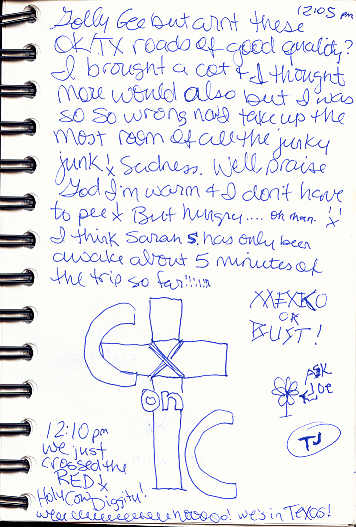 12:05 pm
Golly Gee but arnt these
OK/TX roads of good quality?
I brought a cot & I thought
more would also but I was
so so wrong now I take up the
most room of all the junky
junk! Sadness. Well, praise
God I'm warm & I don't have
to pee! But hungry.... oh man.!!
I think Sarah S. has only been
awake about 5 minutes of
the trip so far!!!!!!
MEXIKO
OR
BUST!
C
on
C
ASK
JOE
TJ
12:10 pm
we just
crossed the
RED!
Holy Cow Diggity!
we's in Texas!